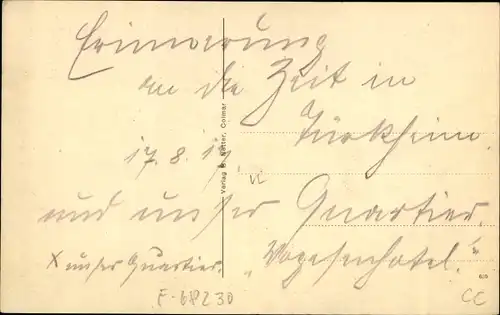 Erinnerung
an die Zeit in
Türkheim.
17.8.
und unser Quartier.
"Vogesenhotel."
x unser Quartier.
F-68230
CE
Verlag Colmar